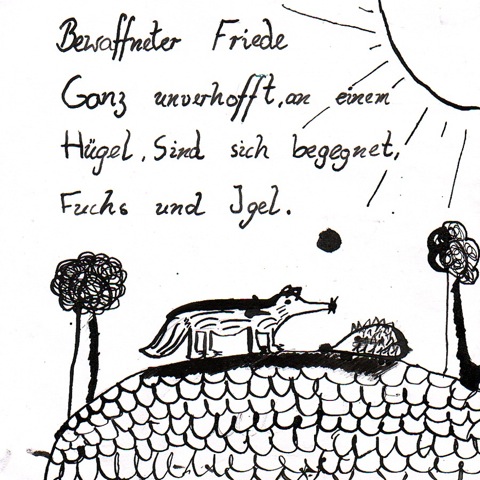 Bewaffneter Friede
Ganz unverhofft, an einem
Hügel, Sind sich begegnet,
Fuchs und Igel.